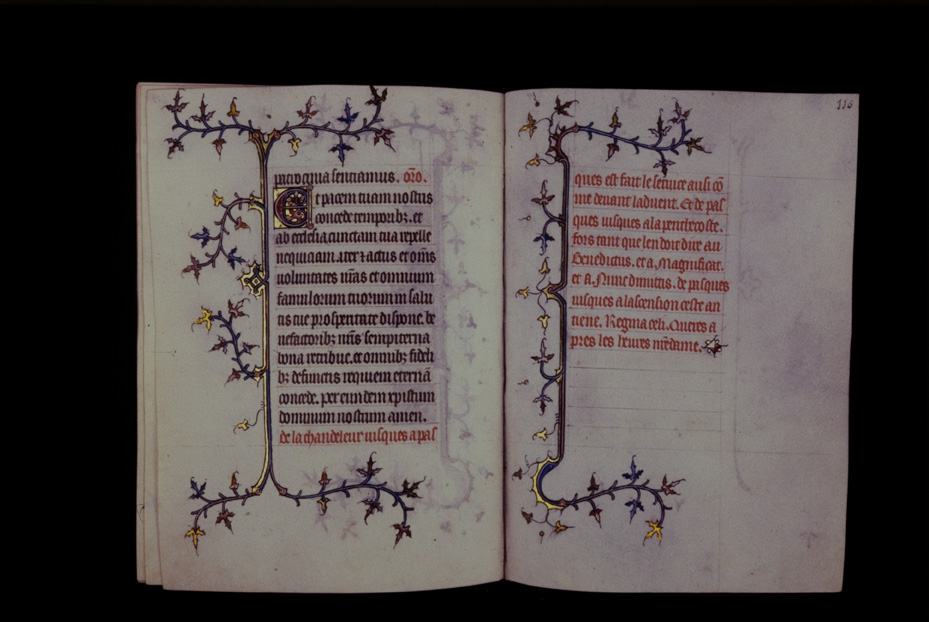 patrocinia sentiamus. oro.
Et pacem tuam nostris
concede temporibz. et
ab ecclesia cunctam tua repelle
nequiciam. iter 7 actus et om̃s
uoluntates nr̃as et omnium
famulorum tuorum in salu
tis tue prosperitate dispone. be
nefactoribz nr̃is sempiterna
bona retribue. et omnibz fideli
bz defunctis requiem eternã
concede. per eundem xpistum
dominum nostrum amen.
de la chandeleur iusques a pas
116
ques est fait le seruice ausi cõ
me deuant laduent. Et de pas
ques iusques a la penthecoste.
fors tant que len doit dire au
Benedictus. et a Magnificat.
et a Nunc dimitus. de pasques
iusques a lascension ceste an
tiene. Regina celi. Queres a
pres les heures nr̃e dame.